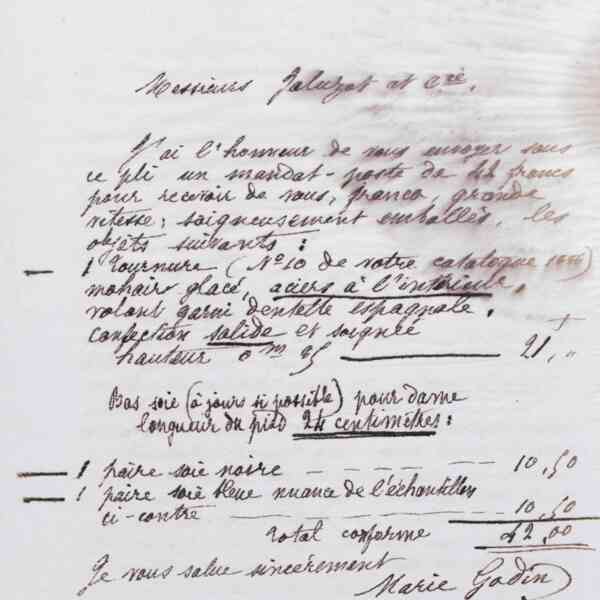 Messieurs Jaluzot et Cie.
J'ai l'honneur de vous envoyer sous
ce pli un mandat-poste de 42 francs
pour recevoir de vous, franco, grande
vitesse; soigneusement emballés, les
objets suivants :
— 1 Tournure (No 10 de votre catalogue 1886)
mohair glacé, aciers à l'intérieur,
volant garni dentelle espagnole,
confection solide et soignée
hauteur 0m 95 — 21, "
Bas soie (à jours si possible) pour dame
longueur du pied 24 centimètres :
— 1 paire soie noire — — — 10,50
— 1 paire soie bleue nuance de l'échantillon
ci-contre — — — 10,50
Total conforme 42,00
Je vous salue sincèrement
Marie Godin